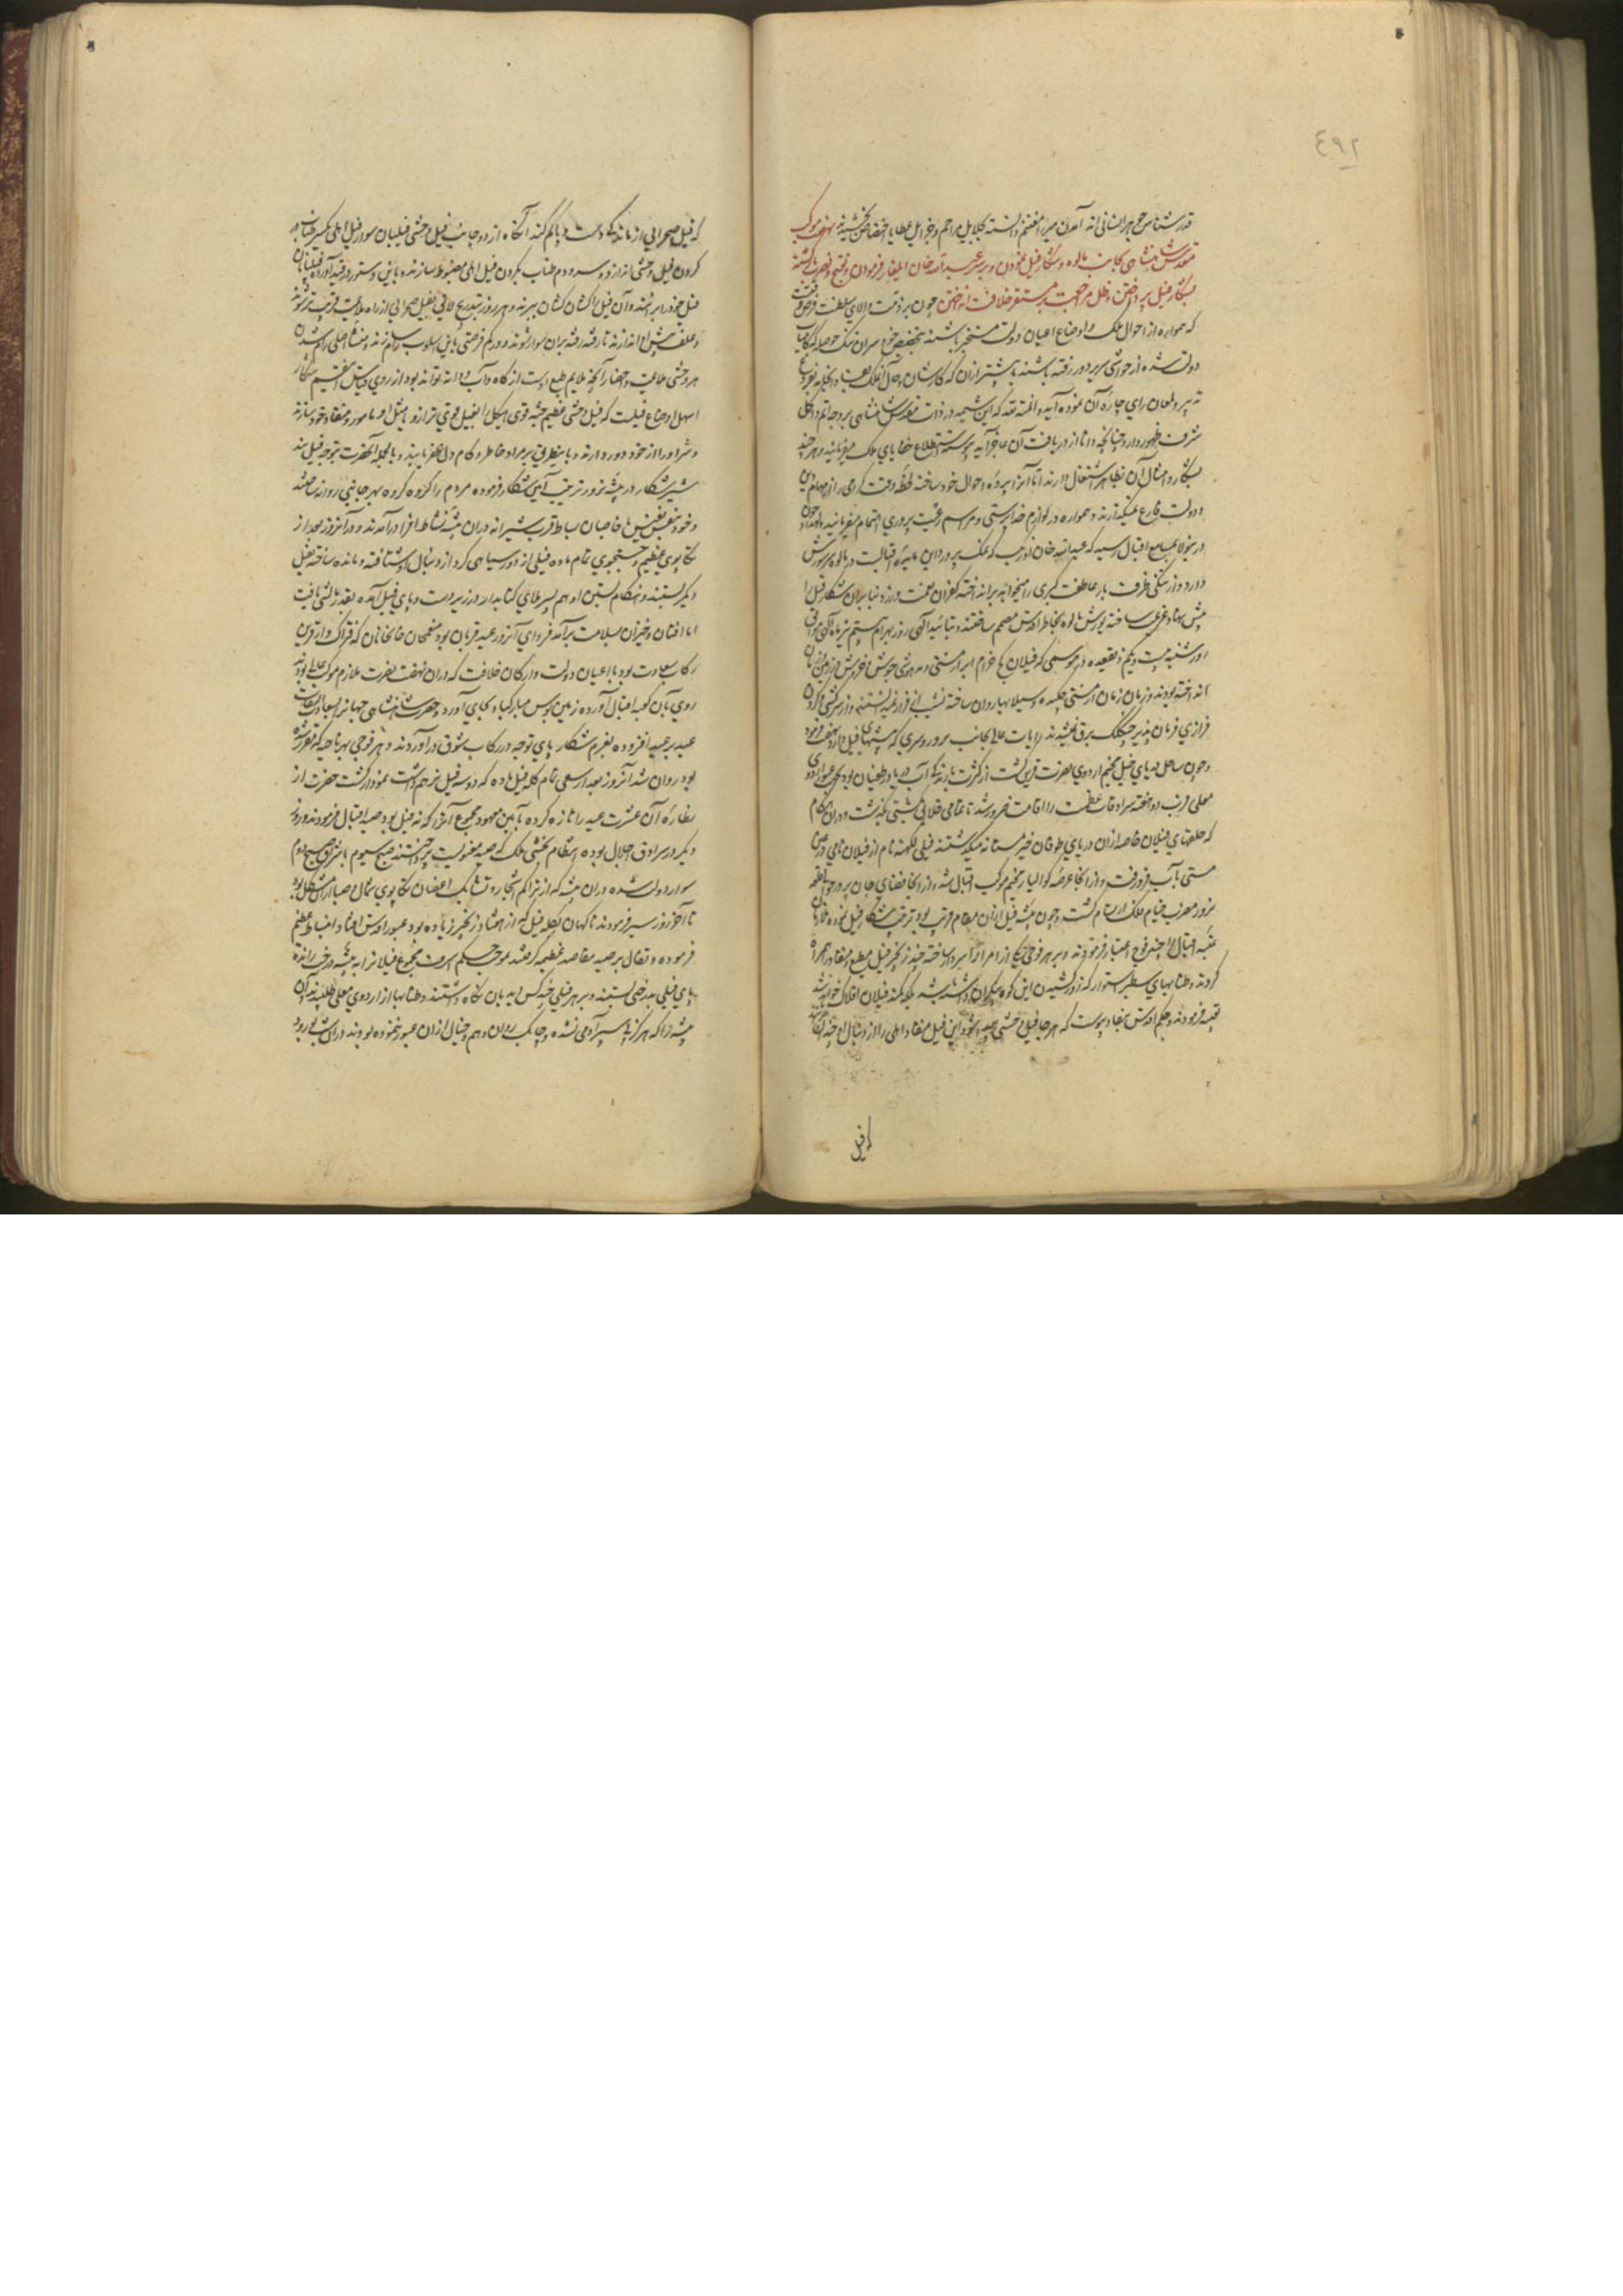 ٤٩٢
قدرشناس جوهر انسانی اند آمدن میرزا مغتنم دانسته بجلایل مراحم و جزایل عطایا اختصاص بخشیدند نهضت موکب
مقدس شاهنشاهی بجانب مالوه و شکار فیل نمودن و بر سر عبدالله خان ایلغار فرمودن و بفتح و نصرت بازگشته
بشکار فیل پرداختن و ظل مراجعت بر مستقر خلافت انداختن چون بر ذمت والای سلطنت فرض وقتست
که همواره از احوال ملک و اوضاع اعیان دولت مستخبر باشند بتخصیص خبر سران تنگ حوصله که کامیاب
دولت شده از حواشی سریر دور رفته باشند تا پیشتر از آن که
تدبیر و لمعان رای چاره آن نموده آید و المنة لله که این شیمه در ذات مقدس شاهنشاهی بر وجه اتم و اکمل
شرف ظهور دارد چنانچه دانا از دریافت آن عاجز آید پیوسته استطلاع خفایای ملک میفرمایند و هر چند
بشکار و امثال آن بظاهر اشتغال دارند اما آنرا پرده احوال خود ساخته لحظه وقت گرامی را از مهمات دین
و دولت فارغ نمیگذارند و همواره در لوازم خداپرستی و مراسم رعیت پروری اهتمام میفرمایند
درینولا بمسامع اقبال رسید که عبدالله خان اوزبک که نمک پرورده این مایده اقبالست در مالوه سر شورش
دارد و از تنگی ظرف بار عاطفت کبری را میخواهد برانداخته کفران نعمت ورزد بنابران شکار فیل را
پیش نهاد عزیمت ساخته یورش مالوه بخاطر اقدس مصمم ساختند و بتائید الهی روز بهرام بیستم تیر ماه الهی موافق
روز شنبه بیست و یکم ذیقعده در موسمی که فیلان کج خرام ابر از مستی و مدهوشی جوش و خروش در زمین و زمان
انداخته بودند و زمان زمان از مستی چکیده و سیلابها روان ساخته نشیب از فراز نمیدانستند و از سرکشی و گردن
فرازی فرمان پذیر چکک برق نمیشدند رایات عالی بجانب نرور و سری که بیشهای فیل دارد نهضت فرمود
و چون ساحل دریای چنبل مخیم اردوی نصرت قرین گشت از کثرت بارندگی آب دریا در طغیان بود بجهت عبور اردوی
معلی قریب دو هفته سرادقات عظمت را اقامت ضرور شد تا تمامی خلایق بکشتی بگذشت و دران هنگام
که حلقهای فیلان خاصه ازان دریای طوفان خیز مستانه میگذشتند فیلی لکهنه نام از فیلان نامی در عین
مستی بآب فرو رفت و از انجا عرصه گوالیار مخیم موکب اقبال شد و از انجا فضای جان پرور حوالی قلعه
نرور مضرب خیام ملک ارتسام گشت و چون بیشه فیل ازان مقام قریب بود ترتیب شکار فیل نموده ملازمان
عتبه اقبال را چند فوج اعتبار فرمودند و بر هر فوجی یکی از امرا را امیر ساخته چند زنجیر فیل مطیع و منقاد همراه
کردند و طنابهای سطبر استوار که از زور کشیدن این کوه پیکران
تعبیه فرمودند و حکم اقدس بنفاد پیوست که هر جا فیل وحشی صید شود این فیل منقاد اهلی را از دنبال او چندان
که فیل
که فیل صحرایی از ماندگی دست و پا گم کند آنگاه از دو جانب فیل وحشی فیلبان سوار فیل اهلی یکسر طناب در
گردن فیل وحشی اندازد و سر دوم طناب بگردن فیل اهلی مضبوط سازند و باین دستور در قید آورده فیلبانان
فیل خود را برانند و آن فیل را کشان کشان ببرند و هر روز بتدریج لایق بفیل صحرایی از راه ملایمت قریب تر شوند
و علف پیش او اندازند تا رفته رفته بران سوار شوند و در کم فرصتی باین اسلوب رام سازند و منشاء اصلی رام شدن
هر وحشی ملایمت و احضار آنچه ملایم طبع اوست از کاه و آب و دانه تواند بود از روی قیاس این قسم شکار
اسهل اوضاع فیلست که فیل وحشی عظیم جثه قوی هیکل را بفیل قوی تر ازو یا مثل او مامور و منقاد خود سازند
و شر او را از خود دور دارند و باین طریق بر مراد خاطر و کام دل ظفر یابند و بالجمله آنحضرت بتوجه فیل بند
شیر شکار در بیشه نرور ترتیب آئین شکار فرموده مردم را گروه گروه بهر جانبی روانه ساختند
و خود بنفس نفیس با خاصان بساط قرب شیرانه دران بیشه نشاط افزا درآمدند و در آنروز بعد از
تکاپوی عظیم و جستجوی تمام ماده فیلی از دور سیاهی کرد از دنبال او شتافته و مانده ساخته بفیل
دیگر بستند و هنگام بستن او هم پسر ملای کتابدار در زیر دست و پای فیل آمده بقدر مالشی یافت
اما افتان و خیزان بسلامت برآمد فردای آنروز عید قربان بود منعمخان خانخانان که فتراک وار قرین
رکاب سعادت بود با اعیان دولت و ارکان خلافت که دران نهضت نصرت ملازم موکب عالی بودند
روی بآن کعبه اقبال آورده زمین بوس مبارکباد بجای آورد و حضرت شاهنشاهی جهانرا بسعادت
عید بر عید افزوده بعزم شکار پای توجه در رکاب شوق درآوردند و هر فوجی بهر ناحیه که مقرر شده
بود روان شد آنروز بعد از سعی تمام گله فیل ماده که دو سه فیل نر هم داشت نمودار گشت حضرت از
نظاره آن عشرت عید را تازه کرده بآیین معهود مجموع آنرا که نه فیل بود صید اقبال فرمودند و روز
دیگر در سرادق اجلال بوده بانتظام بخشی ملک که صید معنویست پرداختند صبح سیوم با شروق صبح دوم
سوار دولت شده دران بیشه که از تراکم اشجار و تشابک اغصان تکاپوی شمال و صبا دران مشکل بود
تا آخر روز سیر فرمودند ناگهان بگله فیل که از هفتاد زنجیر زیاده بود عبور اقدس افتاد انبساط عظیم
فرموده و تفال بر صید مقاصد عظیمه گرفتند بموجب حکم اشرف مجموع فیلانرا به بیشه درخت رانده
پای فیلی بدرختی بستند و بر هر فیلی چند کس دیدبان نگاه داشتند و طنابها از اردوی معلی طلبیدند و آن
بیشه را که هرگز پی سپر آدمی نشده و چابک روان وهم و خیال ازان عبور ننموده بودند دران شب بورود